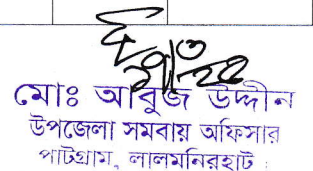 মোঃ আবুজ উদ্দীন
উপজেলা সমবায় অফিসার
পাটগ্রাম, লালমনিরহাট।